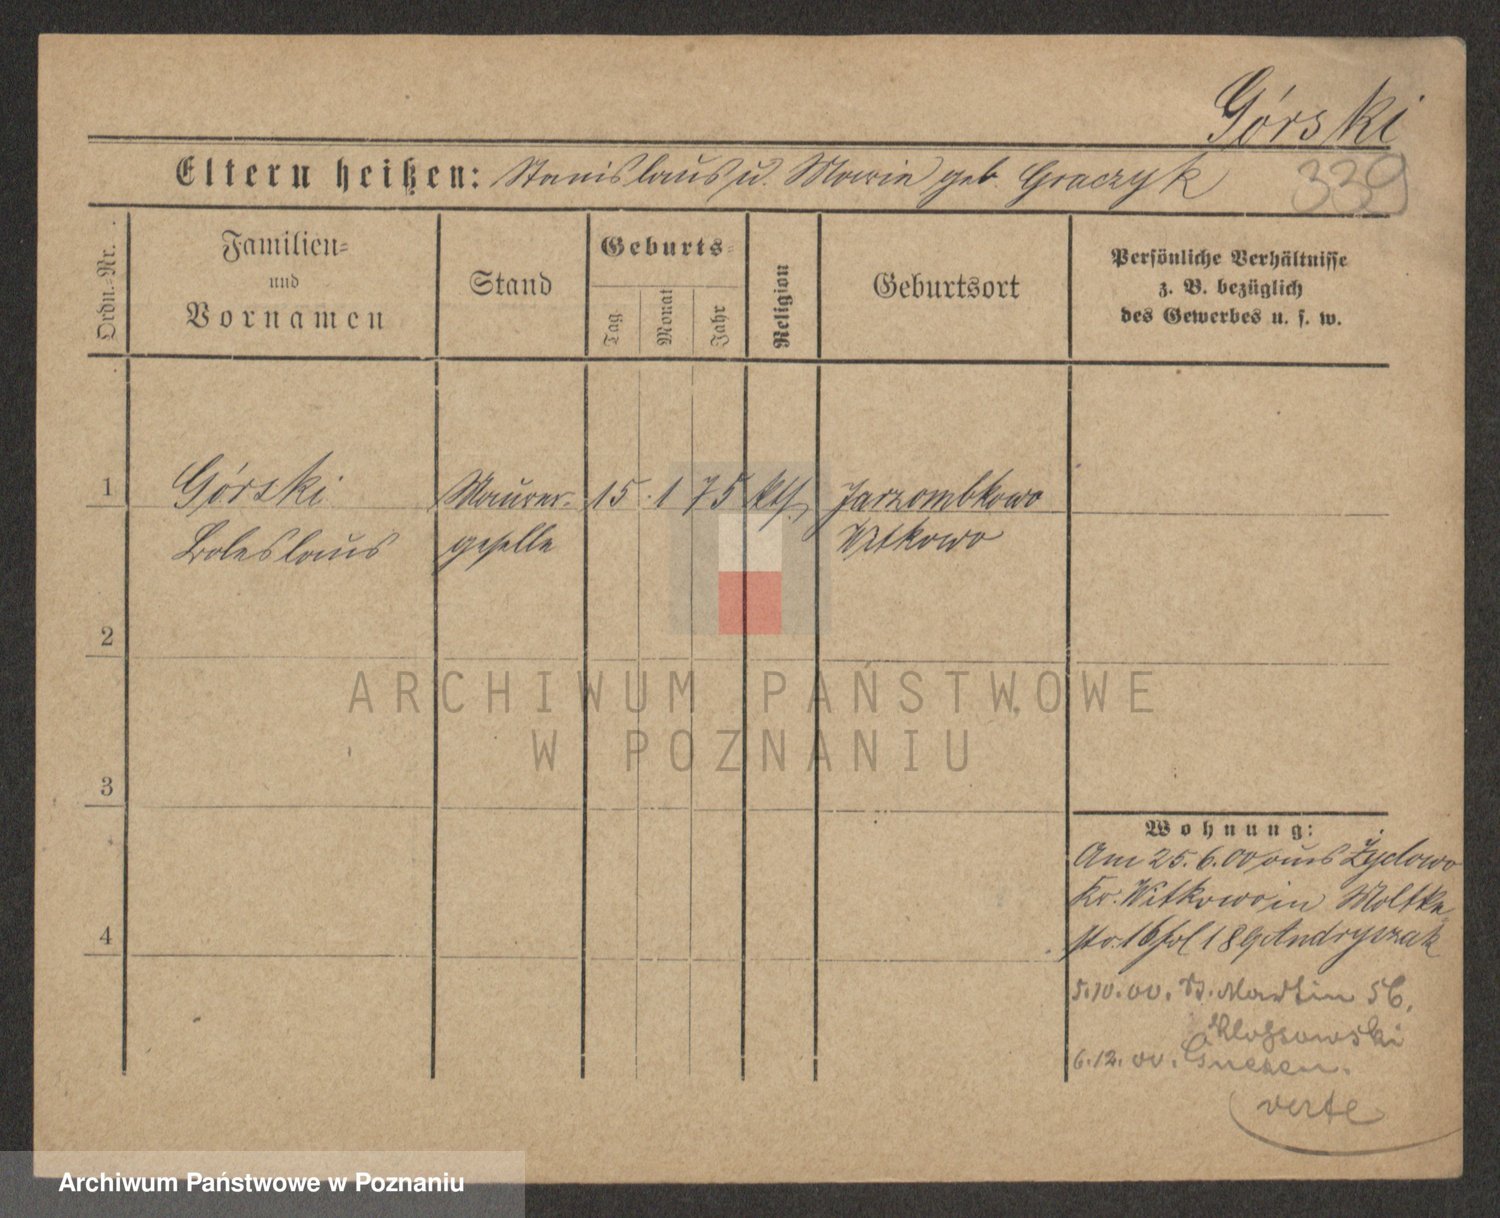 Górski
Eltern heißen: Stanislaus u. Marie geb. Graczyk
339
Ordn.-Nr.
Familien-
und
Vornamen
Stand
Geburts-
Tag
Monat
Jahr
Religion
Geburtsort
Persönliche Verhältnisse
z. B. bezüglich
des Gewerbes u. s. w.
1 Górski Maurer- 15. 1 75 kth. Jarzombkowo
Boleslaus geselle Witkowo
2
ARCHIWUM PAŃSTWOWE
W POZNANIU
3
Wohnung:
Am 25.6.00 aus Żydowo
Kr. Witkowo in Moltke-
4
str. 16 fol 189 Andryszak
5.10.00. St. Martin 56.
Klossowski
6.12.00. Gnesen.
verte
Archiwum Państwowe w Poznaniu